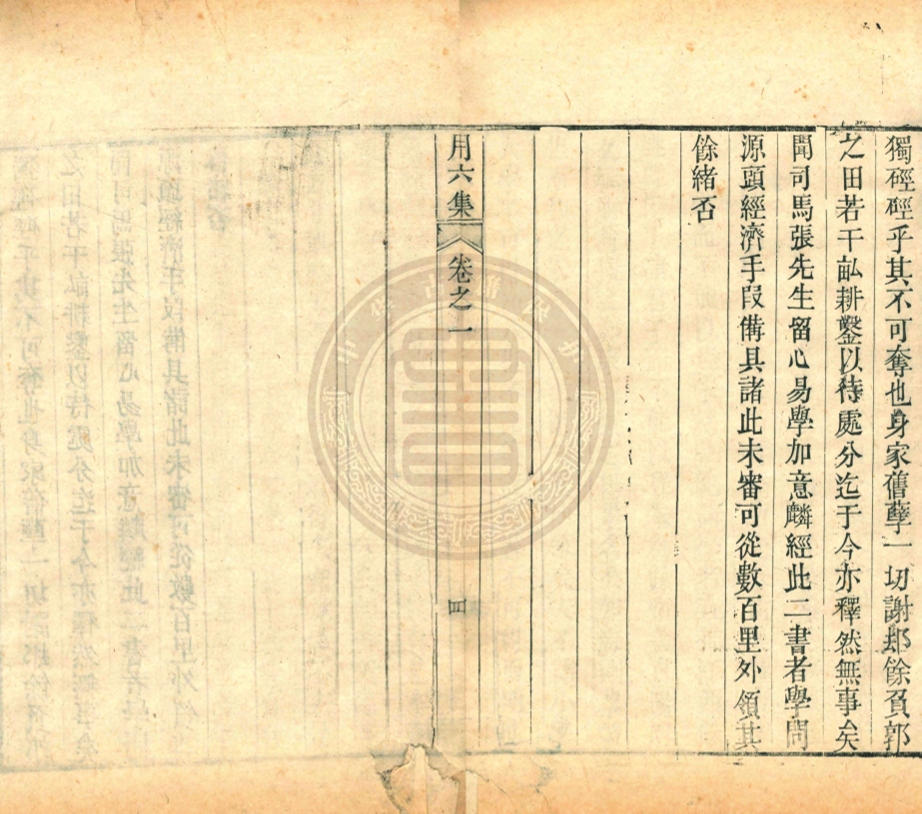 獨硜硜乎其不可奪也身家舊孽一切謝却餘負郭
之田若干畝耕鑿以待處分迄于今亦釋然無事矣
聞司馬張先生留心易學加意麟經此二書者學問
源頭經濟手段備具諸此未審可從數百里外領其
餘緒否
用六集 卷之一 四